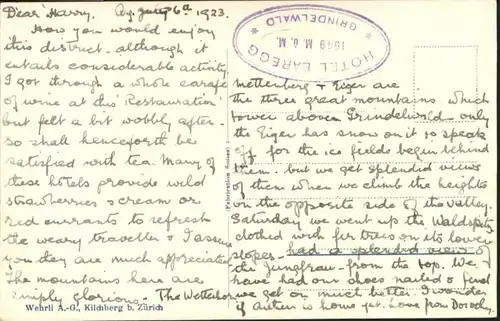 Dear Harry. Aug 6th 1923.
How you would enjoy
this district – although it
entails considerable activity
I got through a whole carafe
of wine at this 'Restauration'
but felt a bit wobbly after –
so shall henceforth be
satisfied with tea. Many of
these hotels provide wild
strawberries & cream or
red currants to refresh
the weary traveller & I assure
you they are much appreciated
The mountains here are
simply glorious – The Wetterhorn
HOTEL BAREGG
1649 M. ü. M.
* GRINDELWALD *
Mettenberg & Eiger are
the three great mountains which
tower above Grindelwald – only
the Eiger has snow on it to speak
of – for the ice fields begin behind
them – but we get splendid views
of them when we climb the heights
on the opposite side of the valley.
Saturday we went up the Waldspitz
clothed with fir trees on its lower
slopes – had a splendid view of
the Jungfrau – from the top. We
have had our shoes nailed & find
we get on much better. I wonder
if is home yet. Love from Dorothy.
(Fabrication Suisse)
Wehrli A.-G., Kilchberg b. Zürich